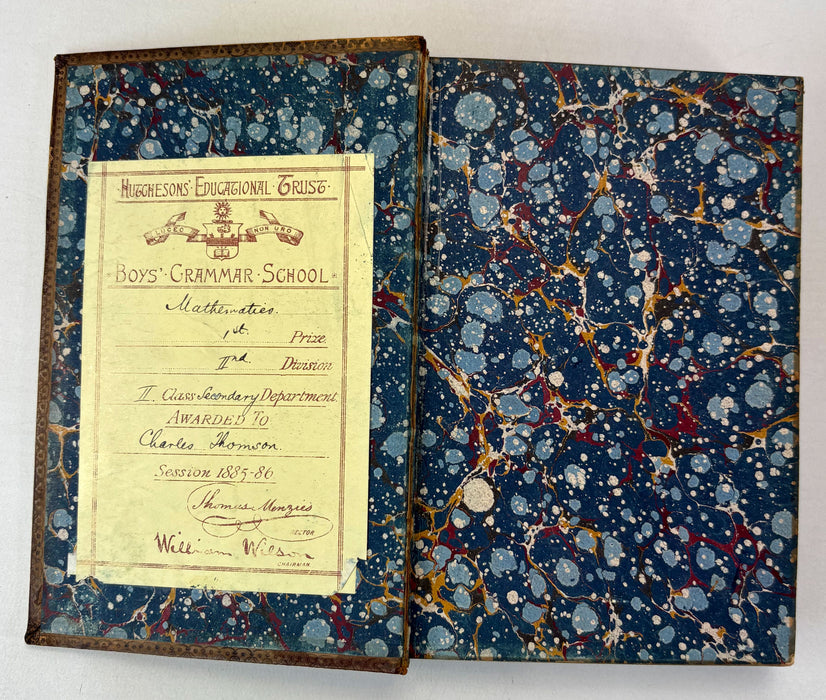 HUTCHESONS' EDUCATIONAL TRUST
LUCEO NON URO
BOYS' GRAMMAR SCHOOL
Mathematics.
1st. Prize
IInd. Division
II. Class Secondary Department
AWARDED TO
Charles Thomson.
Session 1885-86
Thomas Menzies
RECTOR
William Wilson
CHAIRMAN